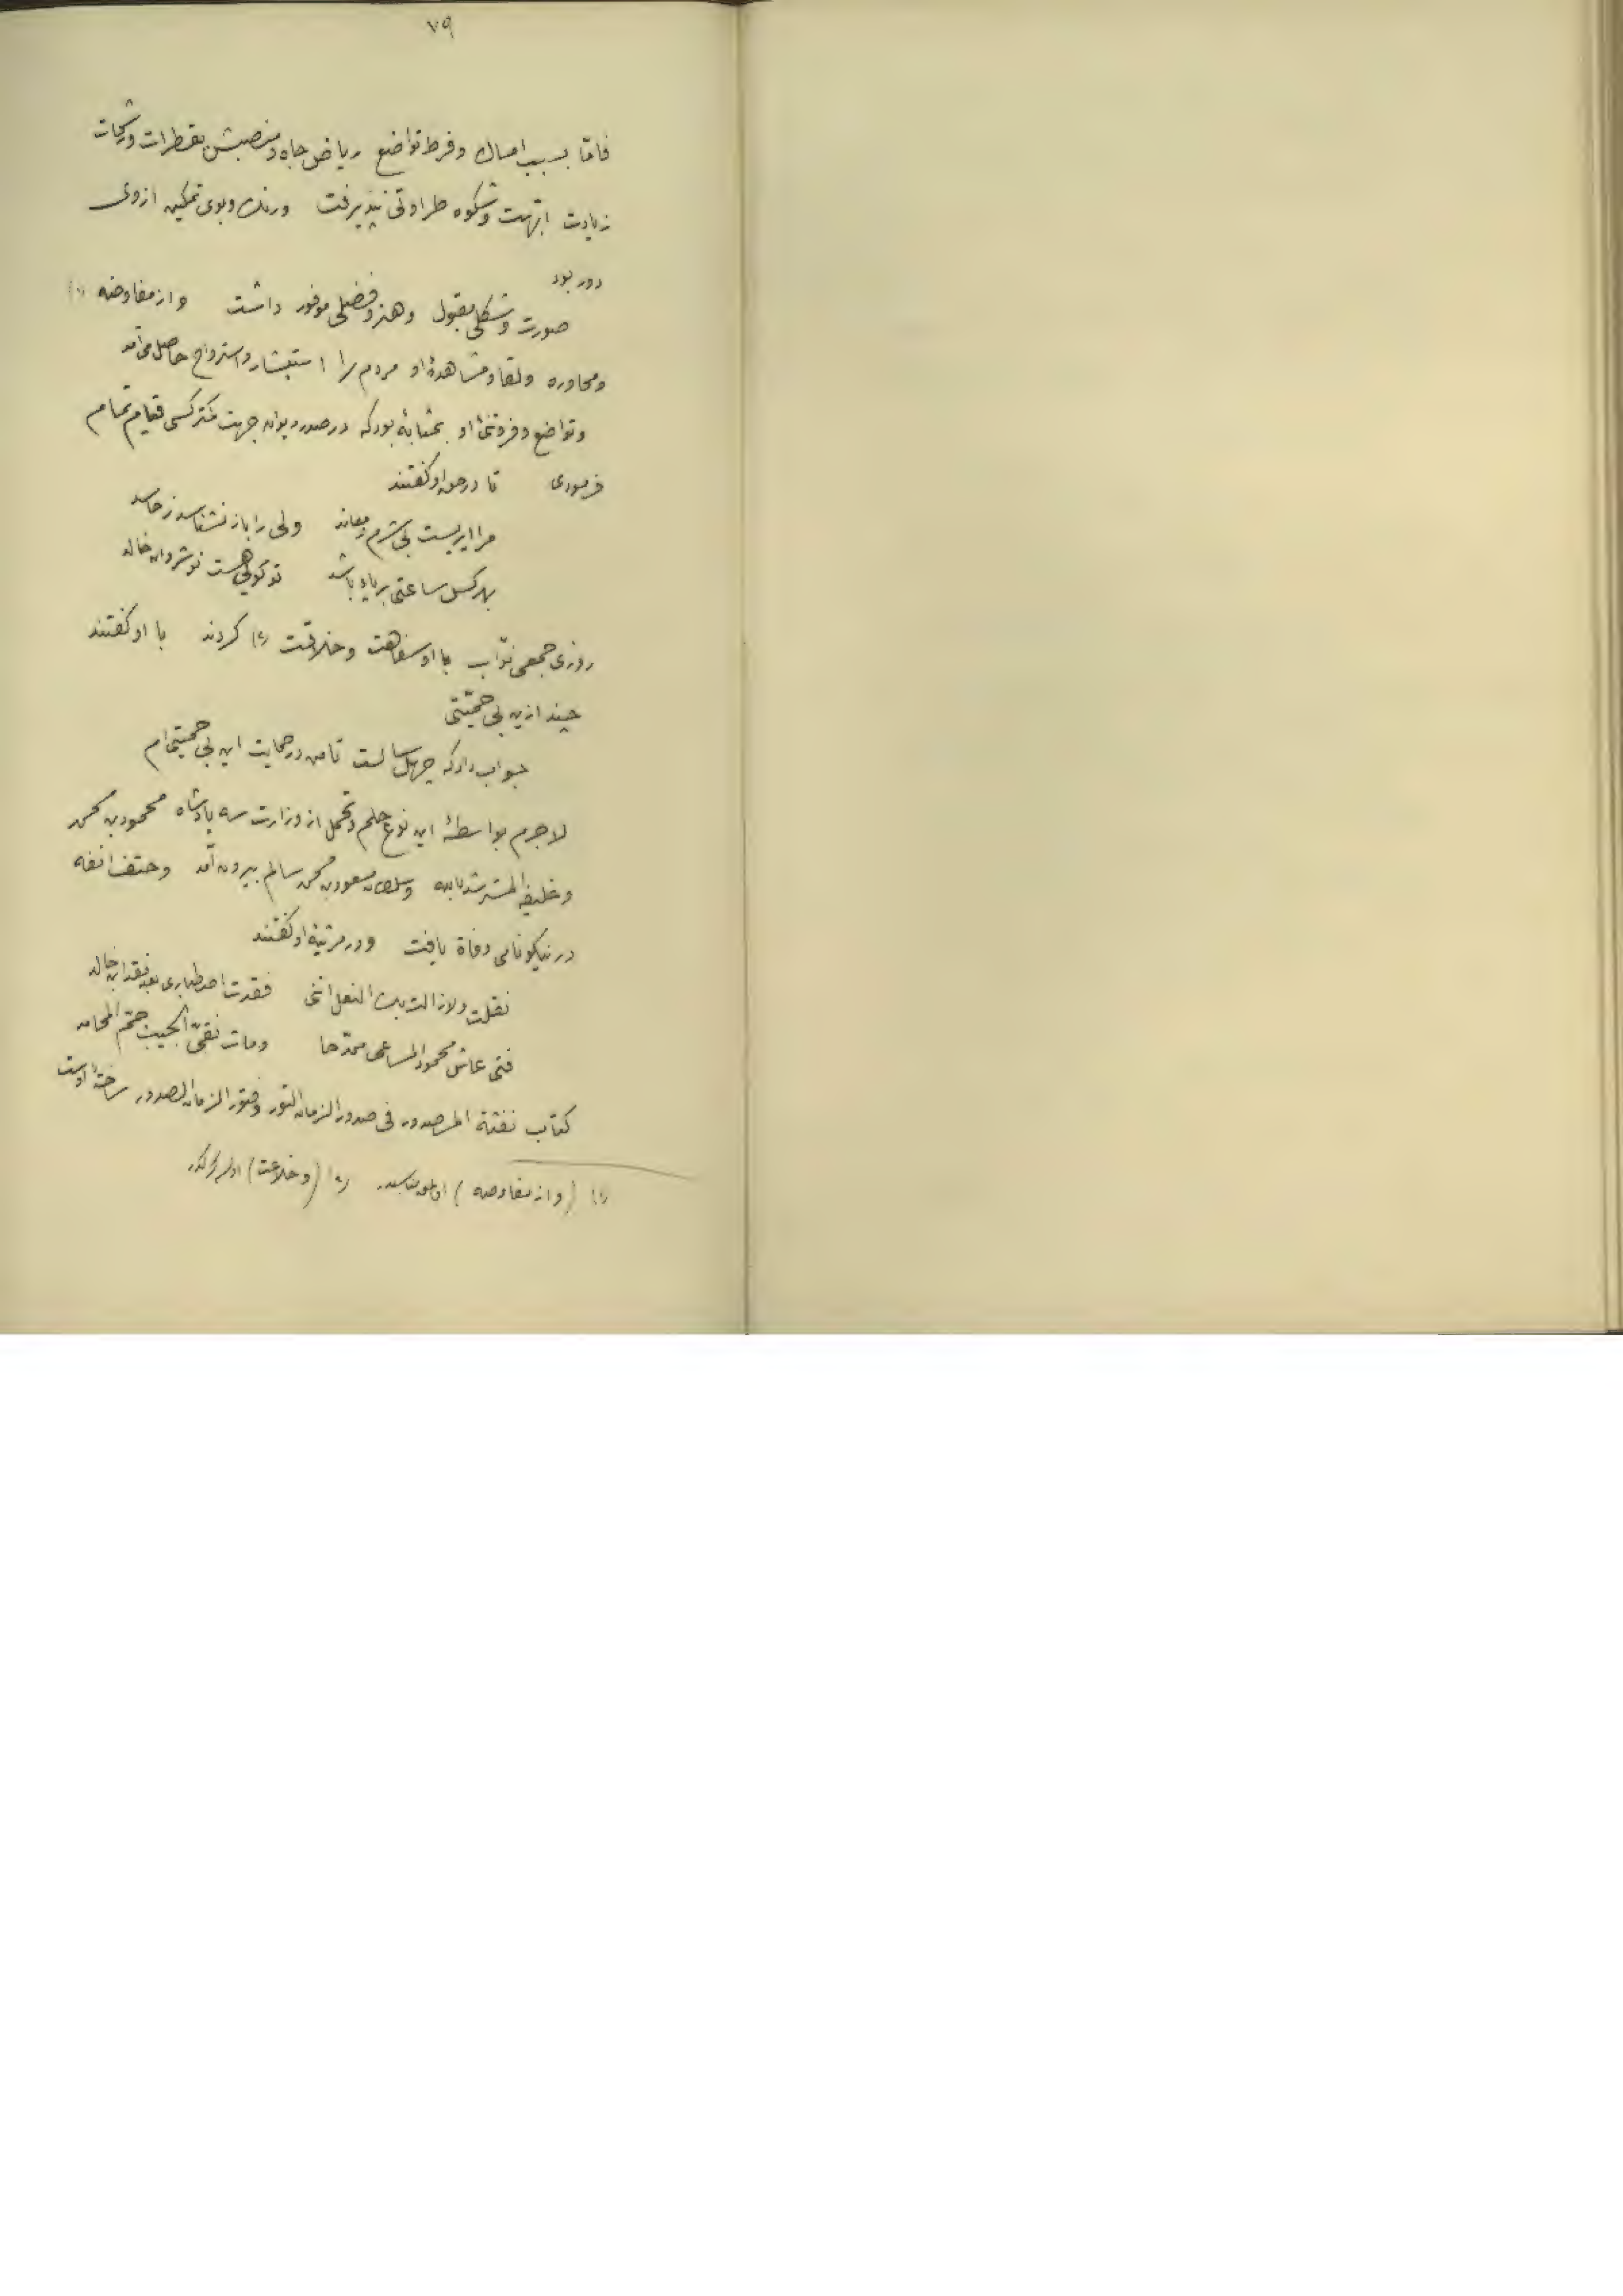 ٧٩
فامّا بسبب امساك وفرط تواضع رياض جاه ومنصبش بقطرات ورشحات
زيادت ابّهت وشكوه طراوتى نپذيرفت ورنك وبوى تمكين ازوى
دور بود
صورت وشكلى مقبول وهنر وفضلى موفور داشت واز مفاوضه (١)
ومحاوره ولقا ومشاهدهٔ او مردم را استبشار واسترواح حاصل مى آمد
وتواضع وفروتنئ او بمثابهٔ بود كه در صدر ديوان جهت كمتر كسى قيام تمام
فرمودى تا در حق او كفتند
مرا ايريست بى شرم ومعاند ولى را باز نشناسد ز حاسد
بهر كس ساعتى بر پاى باشد تو كوئى هست نوشروان خالد
روزى جمعى نوّاب با او سفاهت وخلاقت (٢) كردند با او كفتند
چند ازين بى حميّتى
جواب داد كه چهل سالست تا من در حمايت اين بى حميتى ام
لا جرم بواسطهٔ اين نوع حلم وتحمل از وزارت سه پادشاه محمود بن محمد
وخليفه المسترشد بالله وسلطان مسعود بن محمد سالم بيرون آمد وحتف انفه
در نيكو نامى وفاة يافت ودر مرثيهٔ او كفتند
نقلت ولا زالت بك النعل اننى فقدت اصطبارى بعد فقد ابن خالد
فتى عاش محمود المساعى ممدّحا ومات نقىّ الجيب جمّ المحامد
كتاب نفثة المصدور فى صدور الزمان الفتور وفتور الزمان الصدور ساختهٔ اوست
(١) (واز مفاوضه) (٢) (وخلاعت)